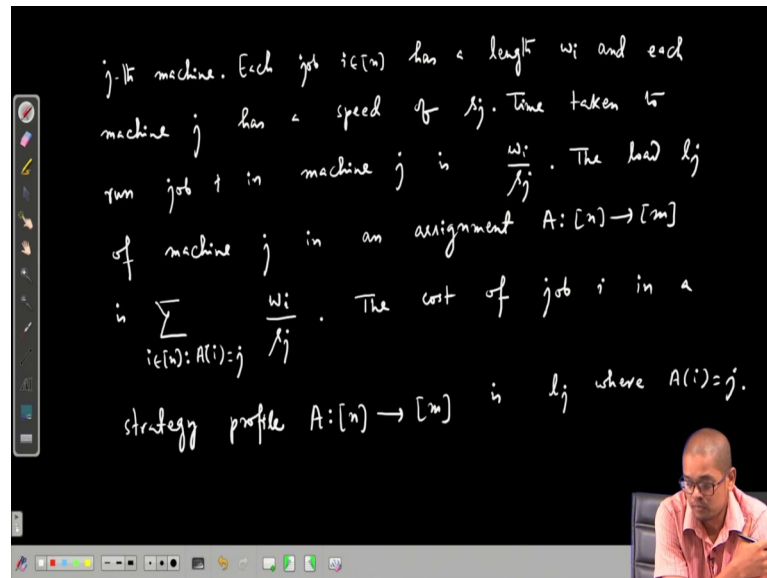 j-th machine. Each job i∈[n] has a length wi and each
machine j has a speed of sj. Time taken to
run job i in machine j is wi/sj. The load lj
of machine j in an assignment A: [n] → [m]
is ∑_{i∈[n]: A(i)=j} wi/sj. The cost of job i in a
strategy profile A: [n] → [m] is lj where A(i)=j.